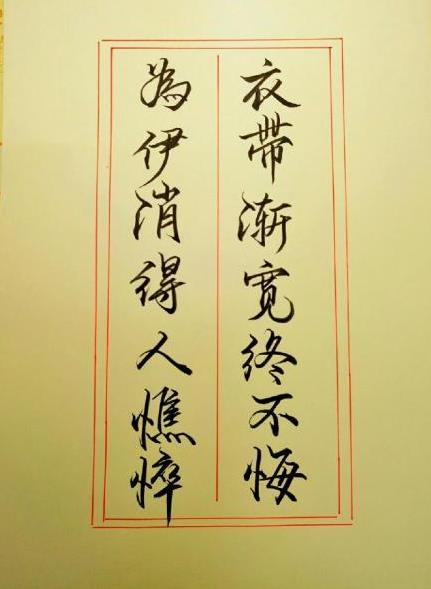 衣带渐宽终不悔
為伊消得人憔悴